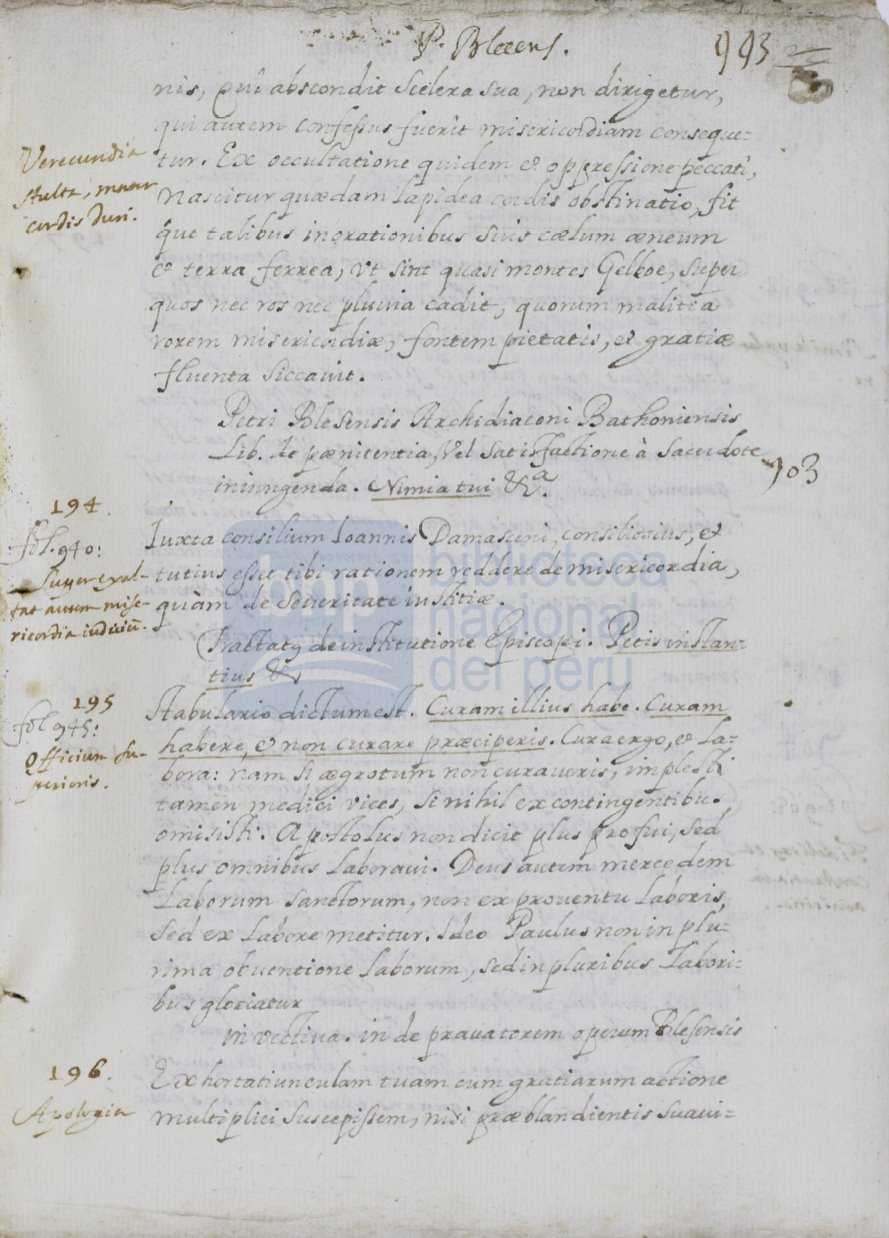 P. Blæens.
993
nis, Qui abscondit scelera sua, non dirigetur,
qui autem confessus fuerit misericordiam conseque-
tur. Ex occultatione quidem et oppressione peccati,
Verecundia
stulta, mater
cordis duri.
Nascitur quædam lapidea cordis obstinatio, fit
que talibus inorationibus suis cælum æneum
et terra ferrea, Vt sint quasi montes Gelboe, super
quos nec ros nec pluuia cadit, quorum malitia
rorem misericordiæ, fontem pietatis, et gratiæ
fluenta siccauit.
Petri Blesensis Archidiaconi Bathoniensis
Lib. de pænitentia, Vel satisfactione à sacerdote
iniungenda. Nimia tui &a.
903
194.
fol. 940:
Super exal-
tat autem mise-
ricordia iudiciū.
Iuxta consilium Ioannis Damasceni, consiliosius, et
tutius esset tibi rationem reddere de misericordia,
quàm de seueritate iustitiæ.
Tractatus de institutione Episcopi. Petis instan-
tius &
195
fol. 945:
Officium su-
perioris.
Stabulario dictum est. Curam illius habe. Curam
habere, et non curare præciperis. Cura ergo, et la-
bora: nam si ægrotum non curaueris, implesti
tamen medici vices, si nihil ex contingentibus
omisisti. Apostolus non dicit plus profui, sed
plus omnibus Laboraui. Deus autem mercedem
Laborum sanctorum, non ex prouentu Laboris,
sed ex Labore metitur. Ideo Paulus non in plu-
rima obuentione Laborum, sed in pluribus Labori-
bus gloriatur
inVectiua. in de prauatorem operum Blesensis
196.
Apologia
Exhortatiunculam tuam cum gratiarum actione
multiplici suscepissem, nisi præblandientis suaui-
biblioteca
nacional
del perú